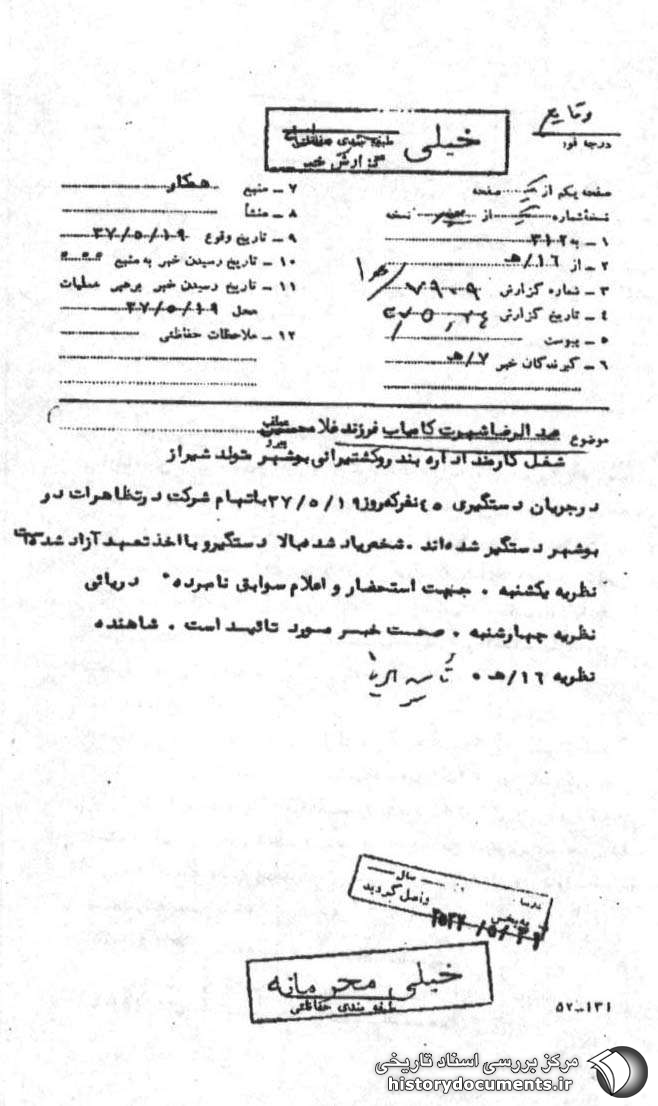 وقایع
درجه فور
خیلی
طبقه بندی حفاظتی
گزارش خبر
صفحه یکم از یک صفحه
نسخه شماره یک از نسخه
۱ - به ۳۱۲
۲ - از ۱۶/ه‍
۳ - شماره گزارش
۴ - تاریخ گزارش
۵ - پیوست
۶ - گیرندگان خبر ۷/ه‍
۷ - منبع همکار
۸ - منشأ
۹ - تاریخ وقوع ۳۷/۵/۱۹
۱۰ - تاریخ رسیدن خبر به منبع
۱۱ - تاریخ رسیدن خبر برهبر عملیات
محل ۳۷/۵/۱۹
۱۲ - ملاحظات حفاظتی
موضوع عبدالرضا شهرت کامیاب فرزند غلامحسین
شغل کارمند اداره بندر و کشتیرانی بوشهر متولد شیراز
در جریان دستگیری ۴۵ نفر که روز ۳۷/۵/۱۹ باتهام شرکت در تظاهرات در
بوشهر دستگیر شده‌اند . شخص یاد شده بالا دستگیر و با اخذ تعهد آزاد شده است
نظریه یکشنبه . جهت استحضار و اعلام سوابق نامبرده . دریائی
نظریه چهارشنبه . صحت خبر مورد تائید است . شاهنده
نظریه ۱۶/ه‍ .
سال
واصل گردید
خیلی محرمانه
طبقه بندی حفاظتی
۵۲-۱۳۱
مرکز بررسی اسناد تاریخی
historydocuments.ir